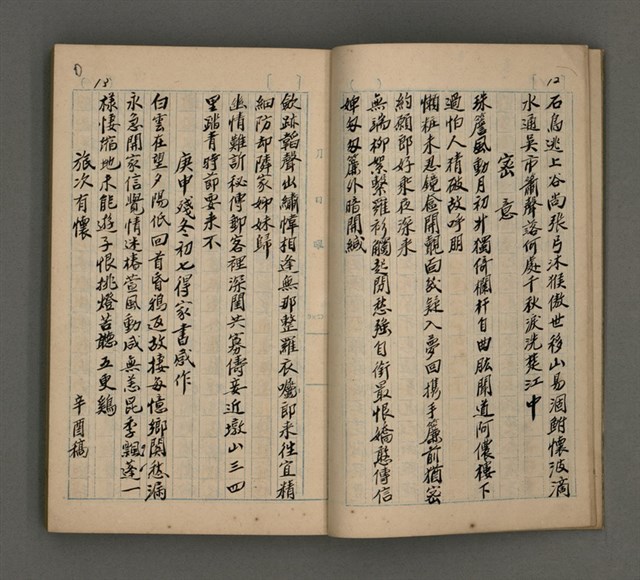 12
石烏逃上谷尚張弓沐猴傲世移山易涸鮒懷波滴
水通吳市蕭聲諮何處千秋淚洗楚江中
密意
珠簾風動月初升獨倚欄杆自曲肱聞道阿儂樓下
過怕人猜破故呼朋
懶粧未忍鏡奩開覿面試疑入夢回携手簾前猶密
約願郎好來夜深來
無端柳絮繫羅衫觸起閒愁強自銜最恨嬌憨傳信
婢匆匆簾外暗開緘
13
斂跡韜聲出繡幃相逢無那整羅衣囑郎來往宜精
細防却隣家姊妹歸
幽情難訴秘傳郵客裡深閨共寡儔妾近墩山三四
里踏青時節要來不
庚申殘冬初七得家書感作
白雲在望夕陽低回首昏鴉返故棲每憶鄉關愁滿
永急開家信覺情迷椿萱風動咸無恙昆季飄蓬一
樣悽縮地未能遊子恨挑燈苦聽五更鷄
旅次有懷
辛酉稿